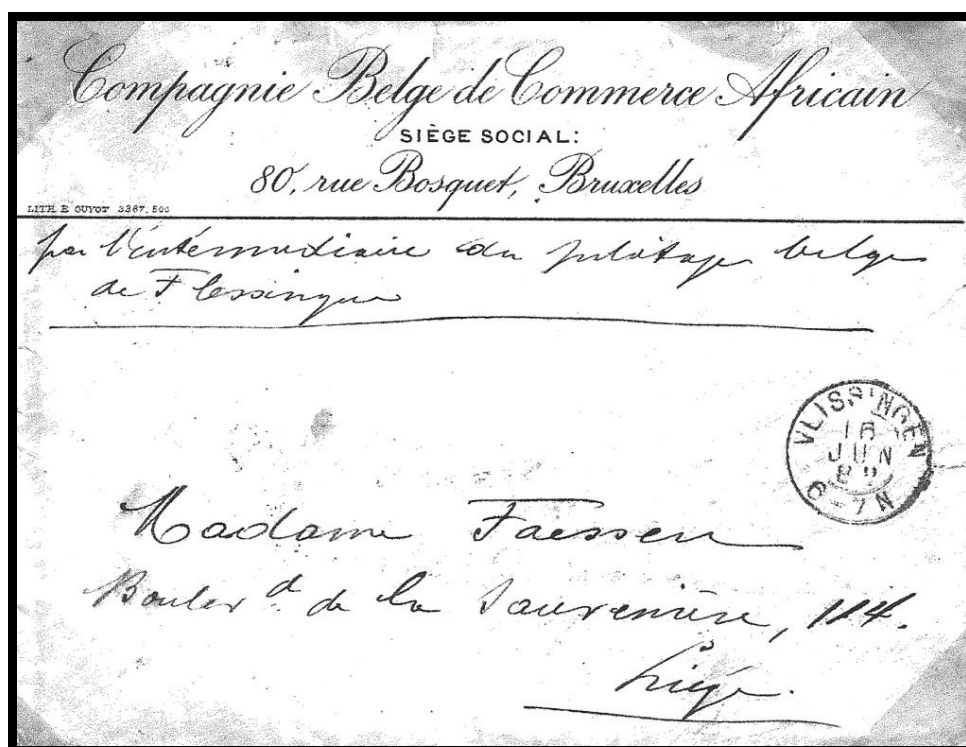 Compagnie Belge de Commerce Africain
SIÈGE SOCIAL:
80, rue Bosquet, Bruxelles
LITH. E. GUYOT 3367.500
par l'intermédiaire du pilotage belge
de Flessingue
VLISSINGEN
16
JUN
8
6-7N
Madame Faessen
Boulevd de la Sauvenière, 114.
Liége.